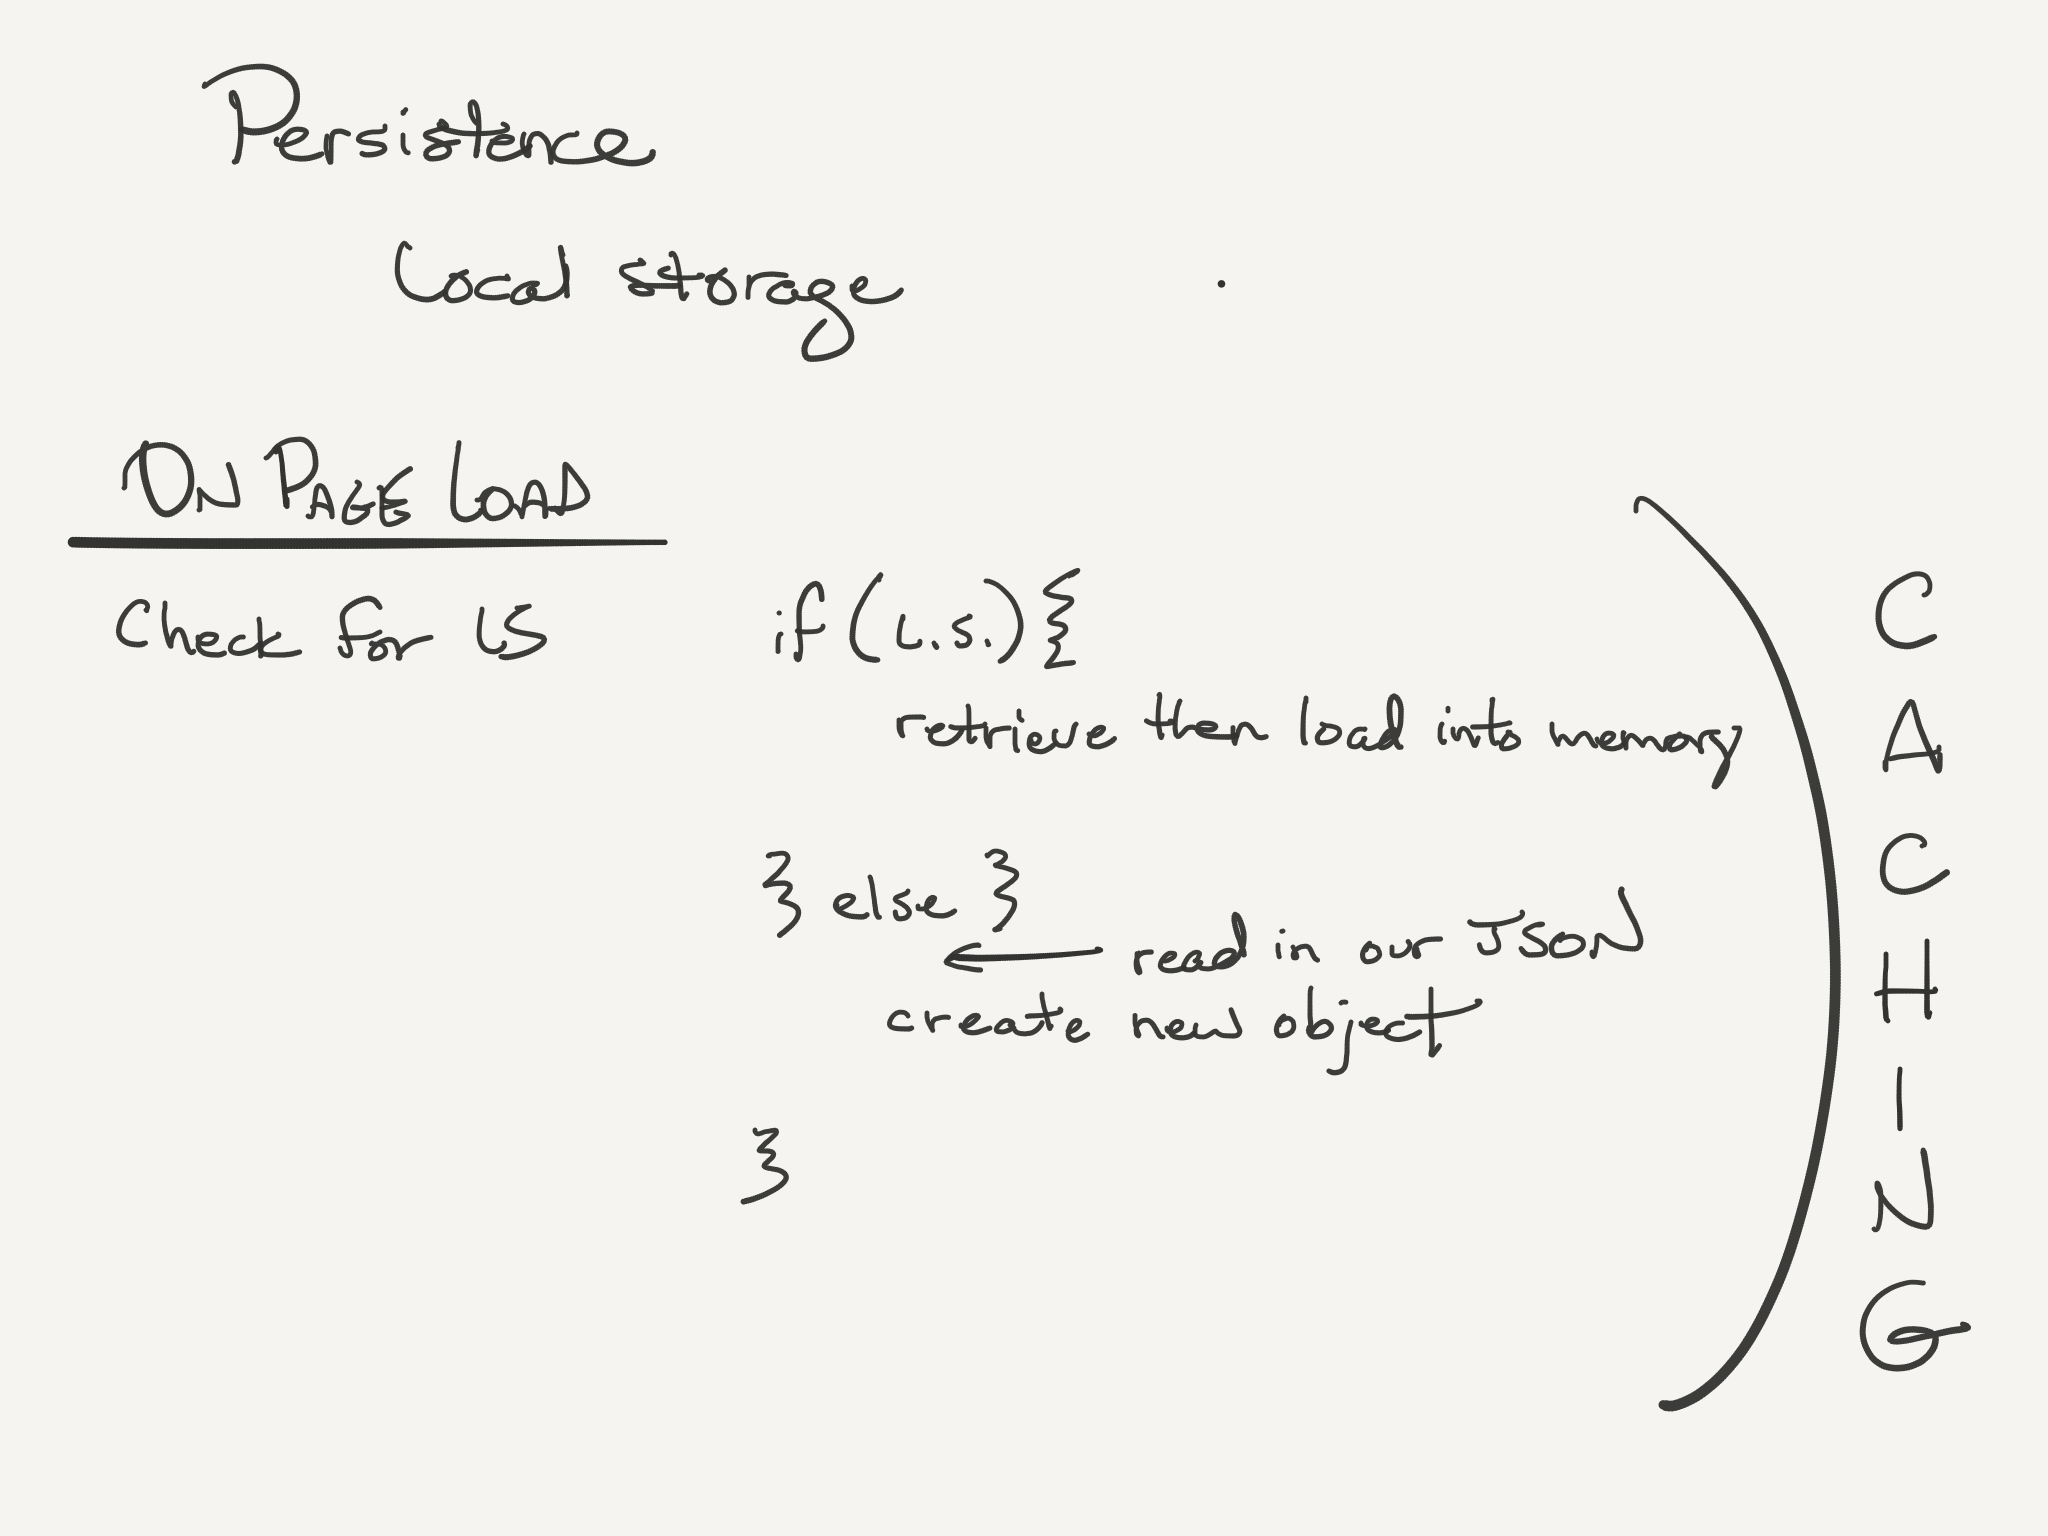 Persistence
Local storage
ON PAGE LOAD
Check for LS
if (L.S.) {
retrieve then load into memory
} else }
← read in our JSON
create new object
}
CACHING